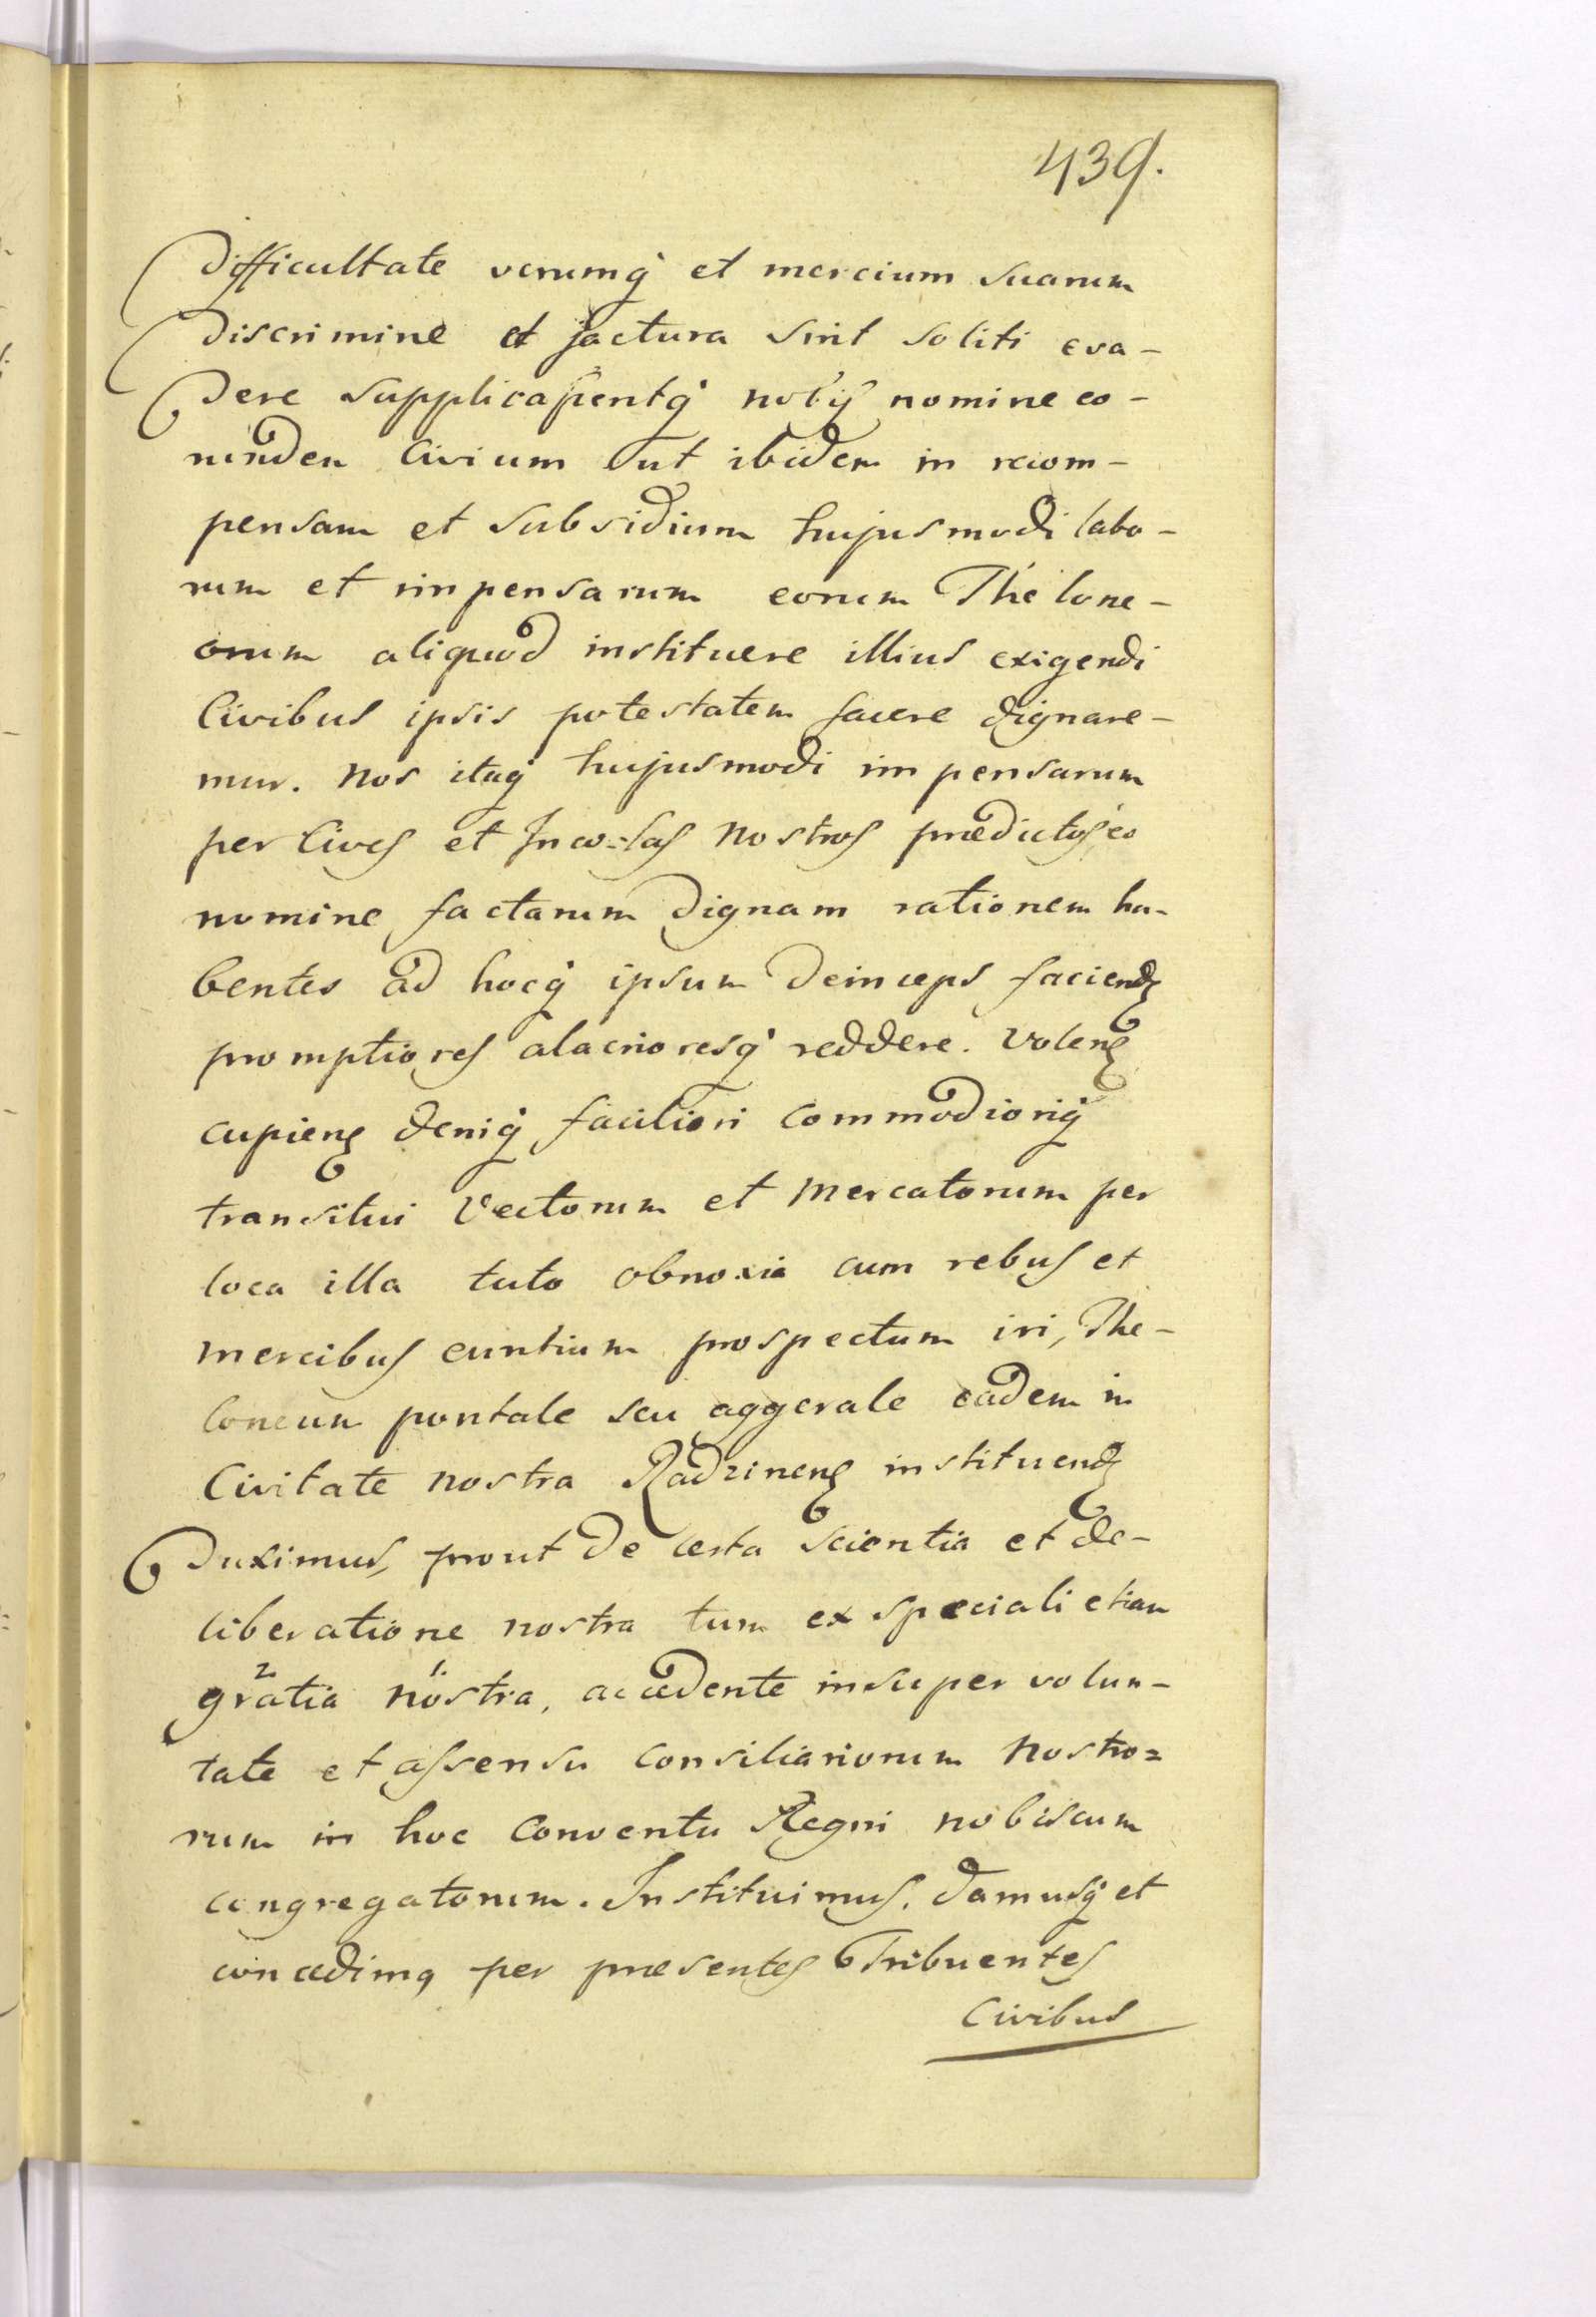 439.
Difficultate verumq; et mercium suarum
Discrimine et jactura sint soliti eva-
dere supplicassentq; nobis nomine eo-
rundem Civium ut ibidem in recom-
pensam et subsidium hujusmodi labo-
rum et impensarum eorum Thelone-
orum aliquod instituere illius exigendi
Civibus ipsis potestatem facere dignare-
mur. Nos itaq; hujusmodi impensarum
per Cives et Inco-las Nostros prædictos eo
nomine factarum dignam rationem ha-
bentes ad hocq; ipsum deinceps faciend
promptiores alacrioresq; reddere. Volens
cupiens deniq; faciliori Commodioriq;
transitui Vectorum et Mercatorum per
loca illa tuto obnoxia cum rebus et
Mercibus euntium prospectum iri, The-
loneum pontale seu aggerale eadem in
Civitate Nostra Radzinens instituend
Duximus, prout de certa scientia et de-
liberatione nostra tum ex speciali etiam
gratia nostra, accedente insuper volun-
tate et assensu Consiliariorum Nostro=
rum in hoc Conventu Regni nobiscum
congregatorum. Instituimus, damusq; et
concedimq per præsentes Tribuentes
Civibus